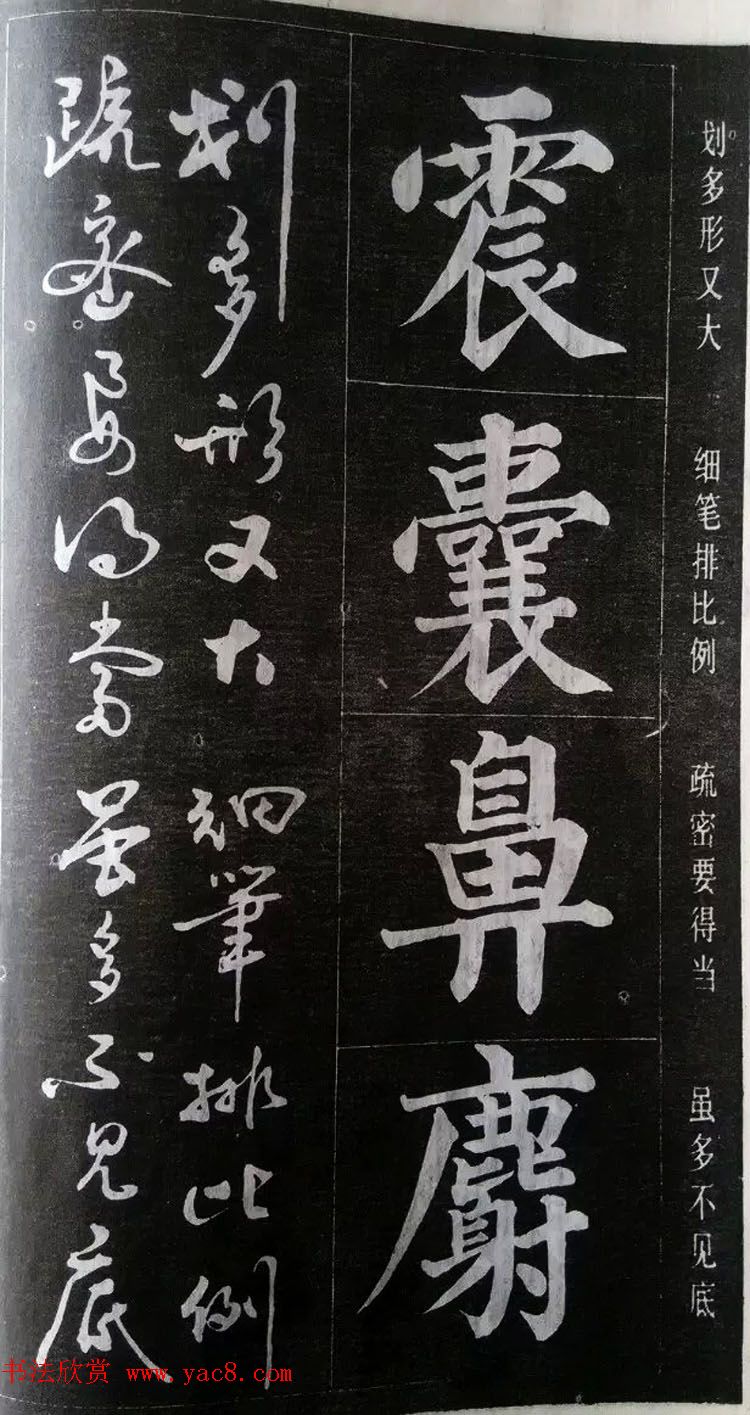 划多形又大 细笔排比例 疏密要得当 虽多不见底
震囊鼻麝
划多形又大 细筆排比例
疏密要得当 虽多不见底
书法欣赏 www.yac8.com